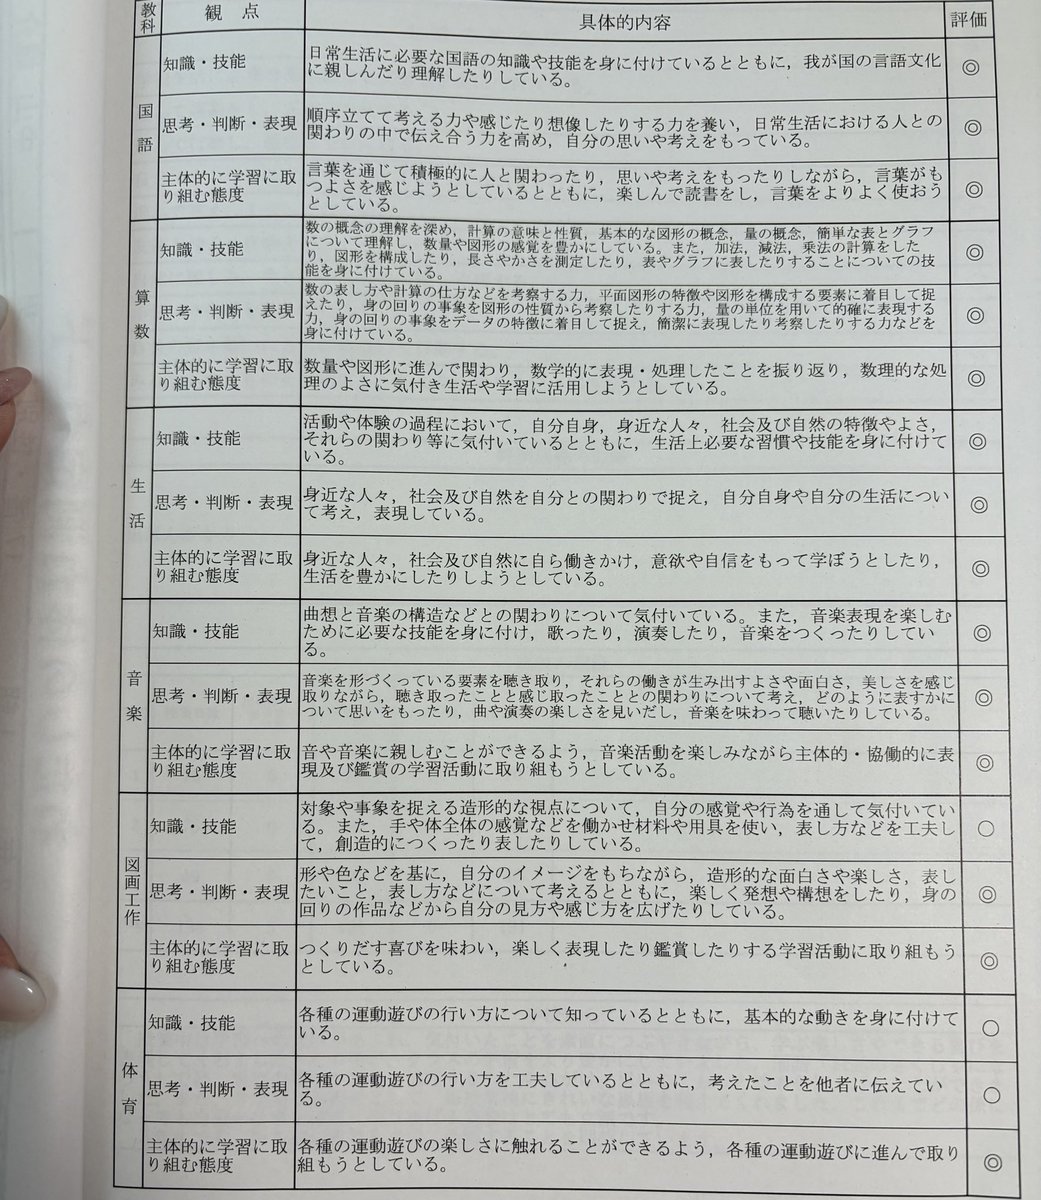 教科 観点 具体的内容 評価
国語
知識・技能
日常生活に必要な国語の知識や技能を身に付けているとともに，我が国の言語文化
に親しんだり理解したりしている。
◎
思考・判断・表現
順序立てて考える力や感じたり想像したりする力を養い，日常生活における人との
関わりの中で伝え合う力を高め，自分の思いや考えをもっている。
◎
主体的に学習に取
り組む態度
言葉を通じて積極的に人と関わったり，思いや考えをもったりしながら，言葉がも
つよさを感じようとしているとともに，楽しんで読書をし，言葉をよりよく使おう
としている。
◎
算数
知識・技能
数の概念の理解を深め，計算の意味と性質，基本的な図形の概念，量の概念，簡単な表とグラフ
について理解し，数量や図形の感覚を豊かにしている。また，加法，減法，乗法の計算をした
り，図形を構成したり，長さやかさを測定したり，表やグラフに表したりすることについての技
能を身に付けている。
◎
思考・判断・表現
数の表し方や計算の仕方などを考察する力，平面図形の特徴や図形を構成する要素に着目して捉
えたり，身の回りの事象を図形の性質から考察したりする力，量の単位を用いて的確に表現する
力，身の回りの事象をデータの特徴に着目して捉え，簡潔に表現したり考察したりする力などを
身に付けている。
◎
主体的に学習に取
り組む態度
数量や図形に進んで関わり，数学的に表現・処理したことを振り返り，数理的な処
理のよさに気付き生活や学習に活用しようとしている。
◎
生活
知識・技能
活動や体験の過程において，自分自身，身近な人々，社会及び自然の特徴やよさ，
それらの関わり等に気付いているとともに，生活上必要な習慣や技能を身に付けて
いる。
◎
思考・判断・表現
身近な人々，社会及び自然を自分との関わりで捉え，自分自身や自分の生活につい
て考え，表現している。
◎
主体的に学習に取
り組む態度
身近な人々，社会及び自然に自ら働きかけ，意欲や自信をもって学ぼうとしたり，
生活を豊かにしたりしようとしている。
◎
音楽
知識・技能
曲想と音楽の構造などとの関わりについて気付いている。また，音楽表現を楽しむ
ために必要な技能を身に付け，歌ったり，演奏したり，音楽をつくったりしてい
る。
◎
思考・判断・表現
音楽を形づくっている要素を聴き取り，それらの働きが生み出すよさや面白さ，美しさを感じ
取りながら，聴き取ったことと感じ取ったこととの関わりについて考え，どのように表すかに
ついて思いをもったり，曲や演奏の楽しさを見いだし，音楽を味わって聴いたりしている。
◎
主体的に学習に取
り組む態度
音や音楽に親しむことができるよう，音楽活動を楽しみながら主体的・協働的に表
現及び鑑賞の学習活動に取り組もうとしている。
◎
図画工作
知識・技能
対象や事象を捉える造形的な視点について，自分の感覚や行為を通して気付いてい
る。また，手や体全体の感覚などを働かせ材料や用具を使い，表し方などを工夫し
て，創造的につくったり表したりしている。
○
思考・判断・表現
形や色などを基に，自分のイメージをもちながら，造形的な面白さや楽しさ，表し
たいこと，表し方などについて考えるとともに，楽しく発想や構想をしたり，身の
回りの作品などから自分の見方や感じ方を広げたりしている。
◎
主体的に学習に取
り組む態度
つくりだす喜びを味わい，楽しく表現したり鑑賞したりする学習活動に取り組もう
としている。
◎
体育
知識・技能
各種の運動遊びの行い方について知っているとともに，基本的な動きを身に付けて
いる。
○
思考・判断・表現
各種の運動遊びの行い方を工夫しているとともに，考えたことを他者に伝えてい
る。
○
主体的に学習に取
り組む態度
各種の運動遊びの楽しさに触れることができるよう，各種の運動遊びに進んで取り
組もうとしている。
◎